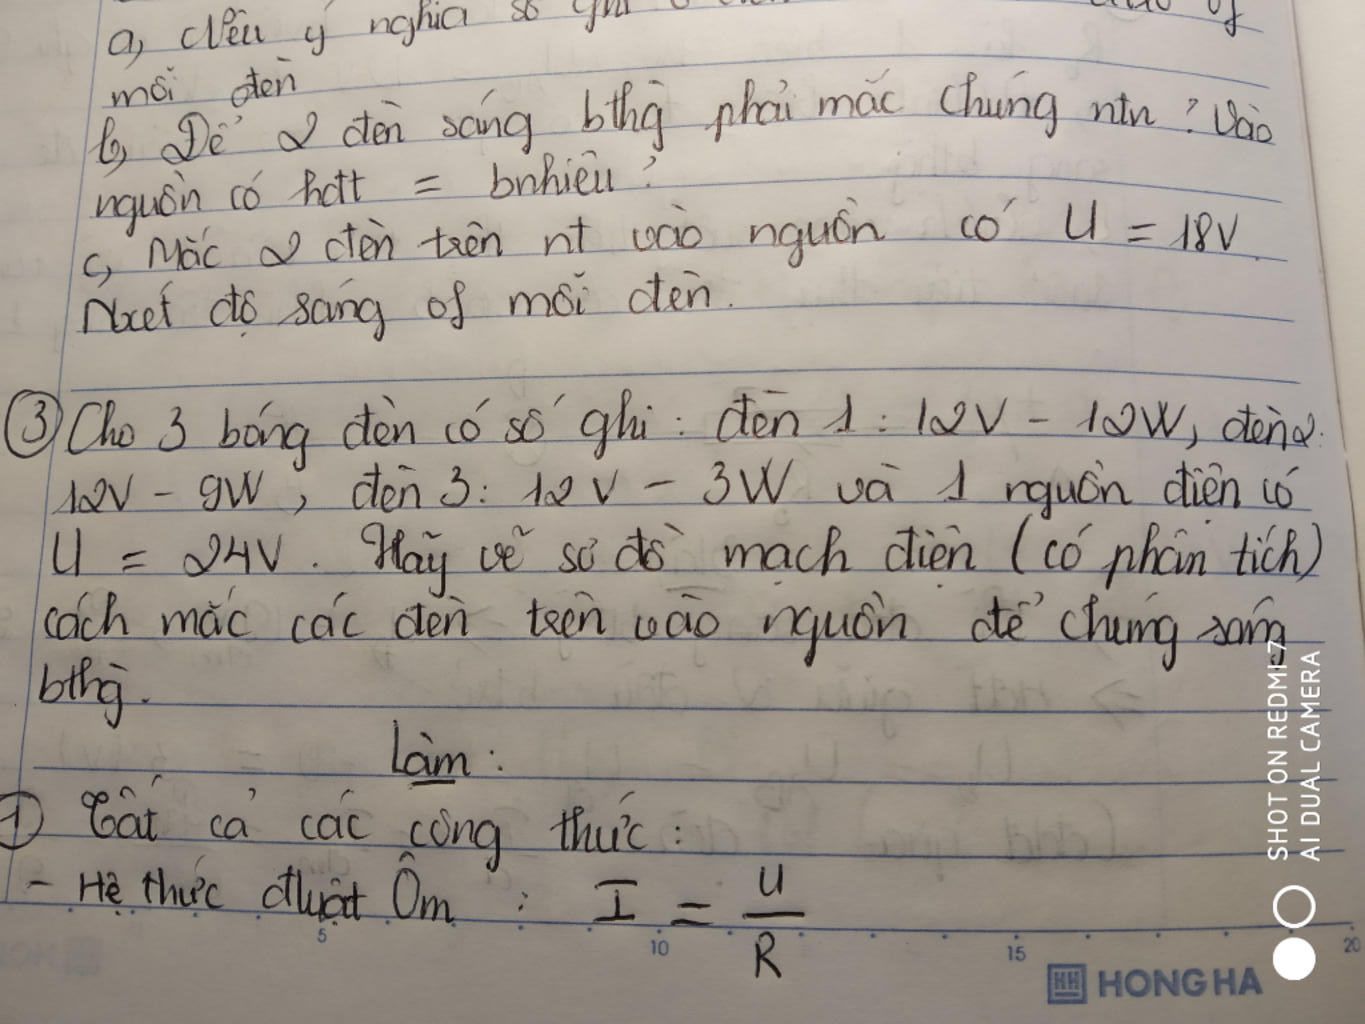 a, Nêu ý nghĩa số ghi of
mỗi đèn
b, Để 2 đèn sáng bthg phải mắc chúng ntn? Vào
nguồn có hđt = bnhiêu?
c, Mắc 2 đèn trên nt vào nguồn có U = 18V.
Nxét độ sáng of mỗi đèn.
③ Cho 3 bóng đèn có số ghi: đèn 1: 12V - 12W, đèn 2:
12V - 9W, đèn 3: 12V - 3W và 1 nguồn điện có
U = 24V. Hãy vẽ sơ đồ mạch điện (có phân tích)
cách mắc các đèn trên vào nguồn để chúng sáng
bthg.
Làm:
① Tất cả các công thức:
- Hệ thức đluật Ôm : I = U/R
5 10 15 20
HH HONG HA
SHOT ON REDMI 7
AI DUAL CAMERA